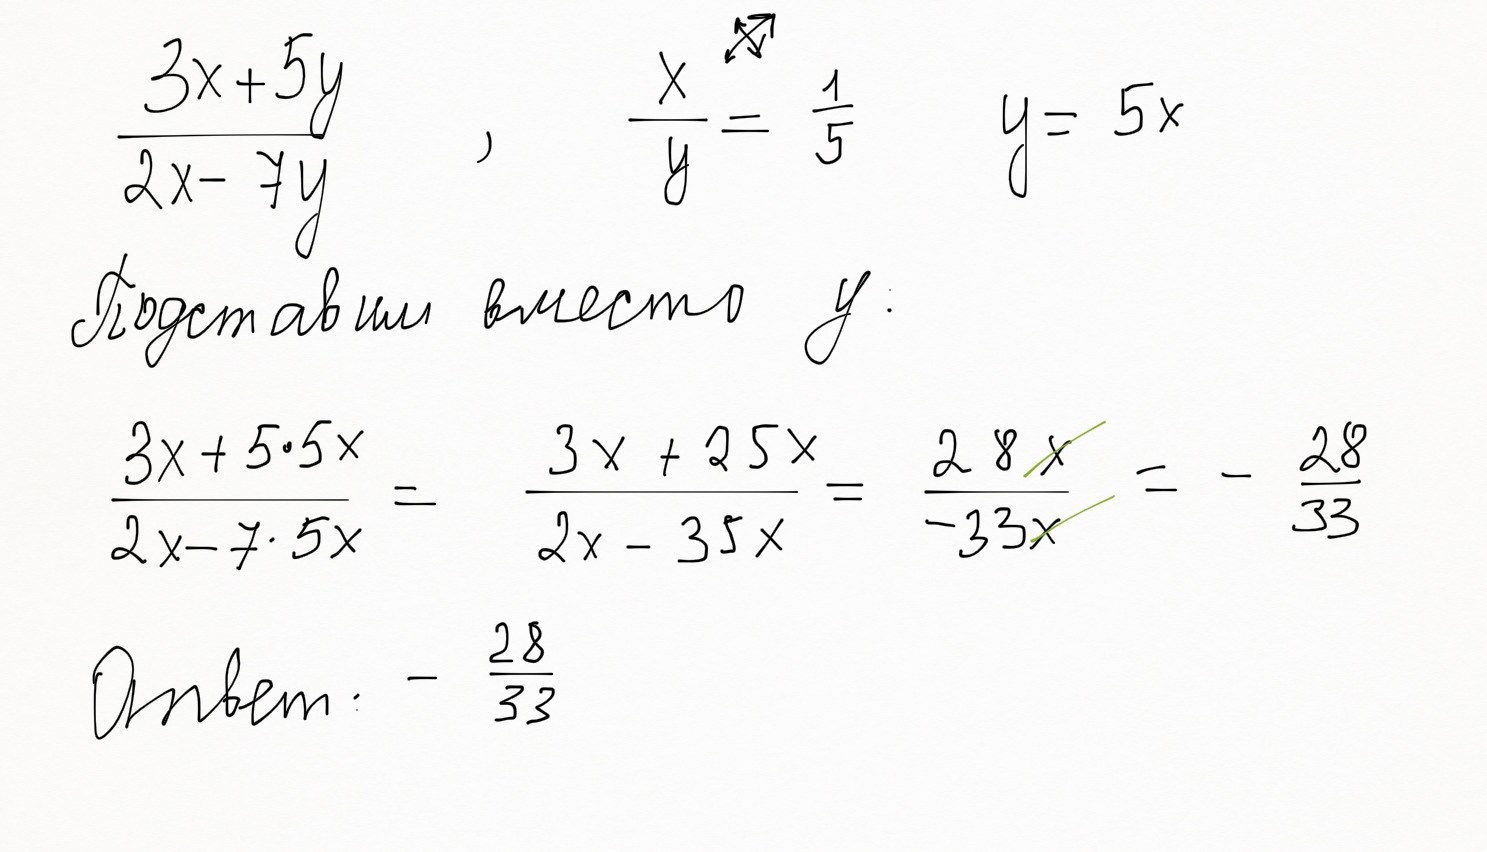 (3x+5y)/(2x-7y) , x/y = 1/5 y = 5x
Подставим вместо y:
(3x+5·5x)/(2x-7·5x) = (3x+25x)/(2x-35x) = 28x/(-33x) = - 28/33
Ответ: - 28/33